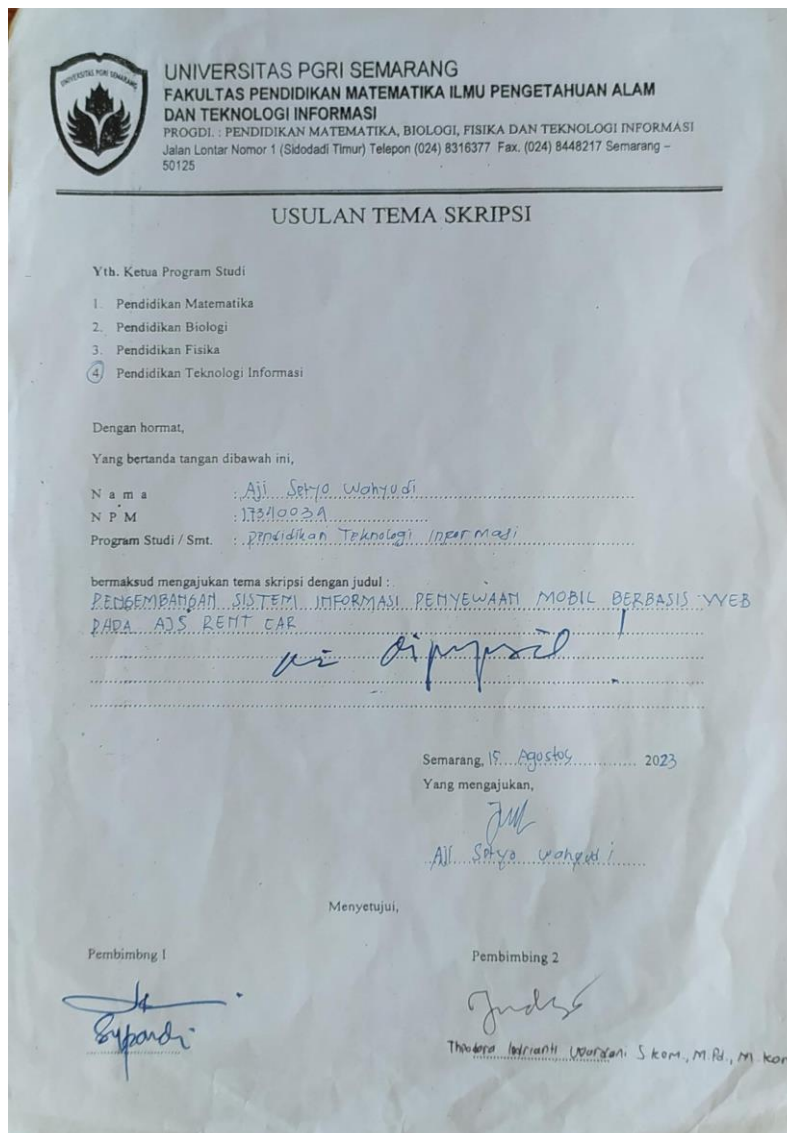 UNIVERSITAS PGRI SEMARANG
UNIVERSITAS PGRI SEMARANG
FAKULTAS PENDIDIKAN MATEMATIKA ILMU PENGETAHUAN ALAM
DAN TEKNOLOGI INFORMASI
PROGDI. : PENDIDIKAN MATEMATIKA, BIOLOGI, FISIKA DAN TEKNOLOGI INFORMASI
Jalan Lontar Nomor 1 (Sidodadi Timur) Telepon (024) 8316377 Fax. (024) 8448217 Semarang –
50125
USULAN TEMA SKRIPSI
Yth. Ketua Program Studi
1. Pendidikan Matematika
2. Pendidikan Biologi
3. Pendidikan Fisika
4. Pendidikan Teknologi Informasi
Dengan hormat,
Yang bertanda tangan dibawah ini,
N a m a : Aji Setyo Wahyudi
N P M :
Program Studi / Smt. : Pendidikan Teknologi Informasi
bermaksud mengajukan tema skripsi dengan judul :
PENGEMBANGAN SISTEM INFORMASI PENYEWAAN MOBIL BERBASIS WEB
PADA AJS RENT CAR
Semarang, 15 Agostos 2023
Yang mengajukan,
Aji Setyo Wahyudi
Menyetujui,
Pembimbng 1 Pembimbing 2
Supandi
Theodora Indrianti Wardani S.Kom., M.Pd., M.Kom